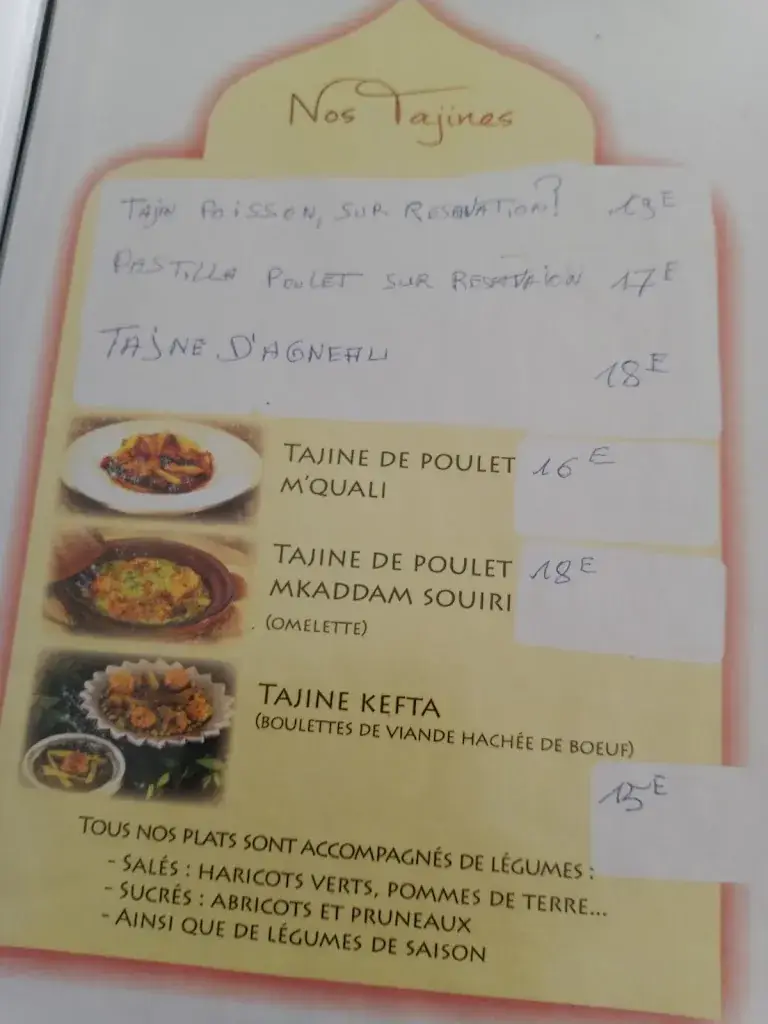 Nos Tajines
TAJIN POISSON, SUR RESERVATION! 19E
PASTILLA POULET SUR 17E
TAJINE D'AGNEAU
18E
TAJINE DE POULET 16E
M'QUALI
TAJINE DE POULET 18E
MKADDAM SOUIRI
(OMELETTE)
TAJINE KEFTA
(BOULETTES DE VIANDE HACHÉE DE BOEUF)
15E
TOUS NOS PLATS SONT ACCOMPAGNÉS DE LÉGUMES :
- SALÉS : HARICOTS VERTS, POMMES DE TERRE...
- SUCRÉS : ABRICOTS ET PRUNEAUX
- AINSI QUE DE LÉGUMES DE SAISON